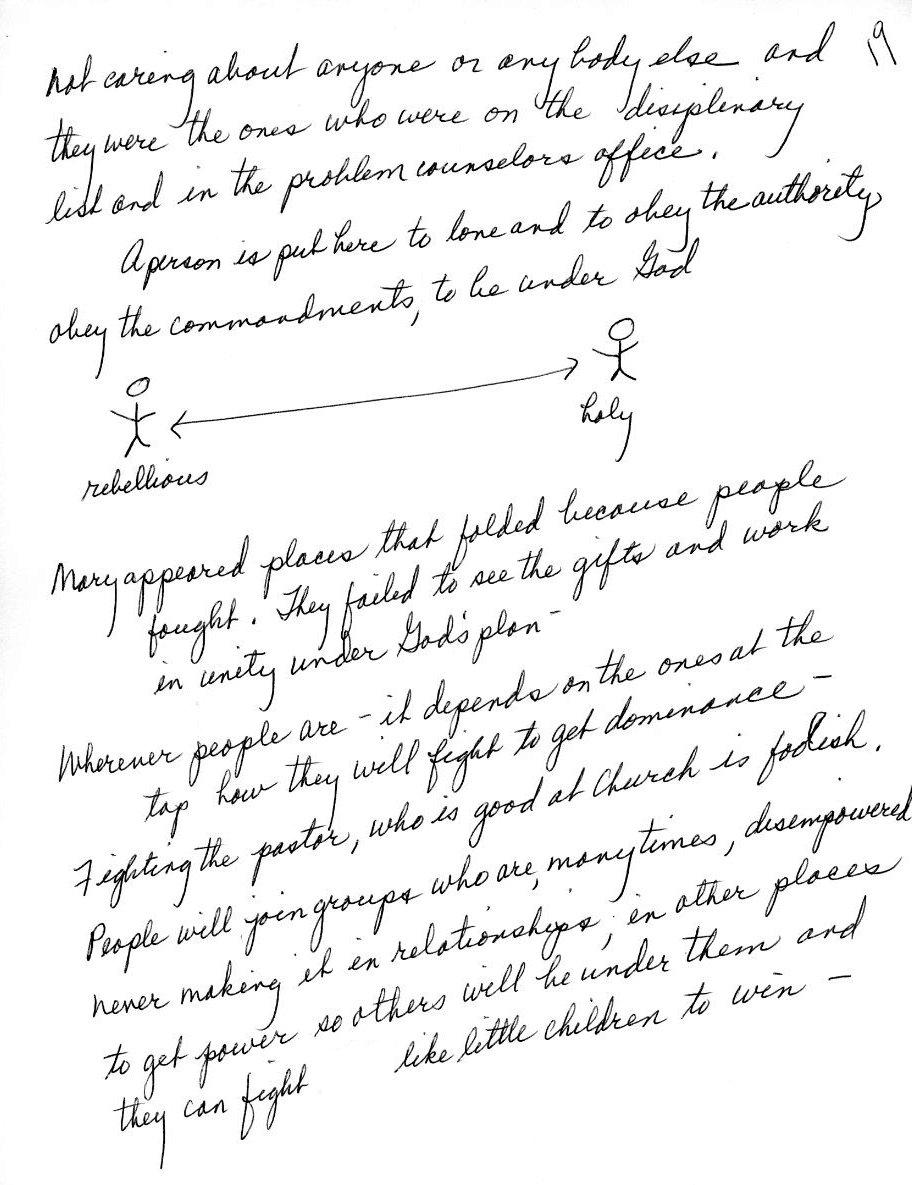 19
not caring about anyone or any body else and
they were the ones who were on the disiplinary
list and in the problem counselors office.
A person is put here to love and to obey the authority,
obey the commandments, to be under God
holy
rebellious
Mary appeared places that folded because people
fought. They failed to see the gifts and work
in unity under God's plan -
Wherever people are - it depends on the ones at the
top how they will fight to get dominance -
Fighting the pastor, who is good at Church is foolish.
People will join groups who are, many times, disempowered
never making it in relationships, in other places
to get power so others will be under them and
they can fight like little children to win -